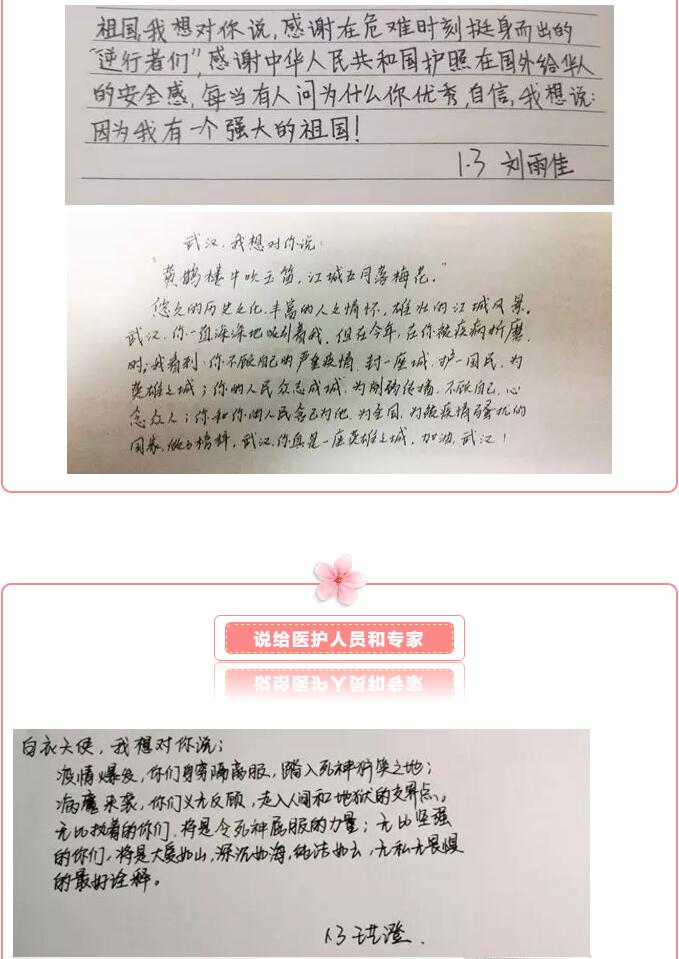 祖国,我想对你说,感谢在危难时刻挺身而出的
“逆行者们”,感谢中华人民共和国护照在国外给华人
的安全感,每当有人问为什么你优秀,自信,我想说:
因为我有一个强大的祖国!
1.3 刘雨佳
武汉,我想对你说:
“黄鹤楼中吹玉笛,江城五月落梅花。”
悠久的历史文化,丰富的人文情怀,雄壮的江城风景。
武汉,你一直深深地吸引着我。但在今年,在你被疫病折磨
时,我看到,你不顾自己的严重疫情,封一座城,护一国民,为
英雄之城;你的人民众志成城,为阻断传播,不顾自己,心
念众人;你和你的人民舍己为他,为全国,为被疫情骚扰的
国家,做了榜样,武汉,你真是一座英雄之城,加油,武汉!
说给医护人员和专家
白衣天使,我想对你说:
疫情爆发,你们身穿隔离服,踏入死神狞笑之地;
病魔来袭,你们义无反顾,走入人间和地狱的交界点。
无比执着的你们,将是令死神屈服的力量;无比坚强
的你们,将是大爱如山,深沉如海,纯洁如云,无私无畏惧
的最好诠释。
1.3 王艺澄